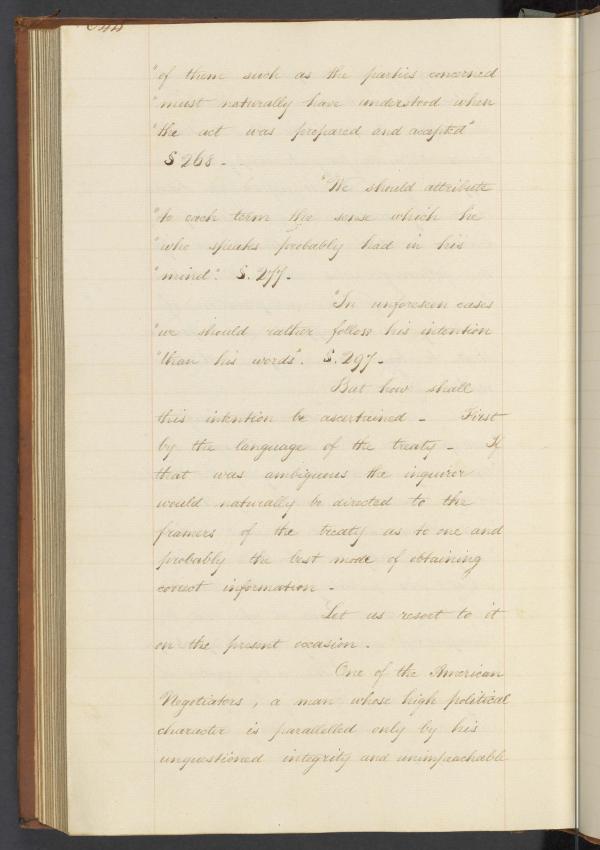 "of them such as the parties concerned
"must naturally have understood when
"the act was prepared and accepted"
§ 268 -
"We should attribute
"to each term the sense which he
"who speaks probably had in his
"mind". §. 277 -
"In unforeseen cases
"we should rather follow his intention
"than his words". §. 297 -
But how shall
this intention be ascertained - First
by the language of the treaty - If
that was ambiguous the inquirer
would naturally be directed to the
framers of the treaty as to one and
probably the best mode of obtaining
correct information -
Let us resort to it
on the present occasion -
One of the American
Negotiators, a man whose high political
character is parallelled only by his
unquestioned integrity and unimpeachable